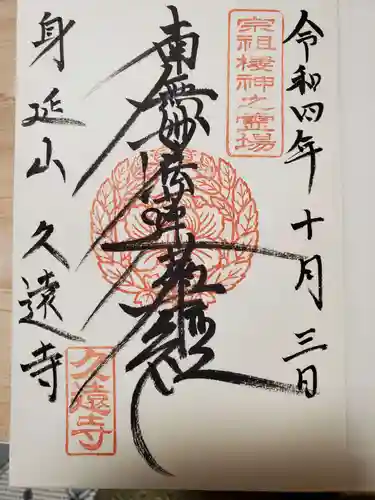 令和四年十月三日
宗祖棲神之霊場
南無妙法蓮華経
身延山久遠寺
久遠寺